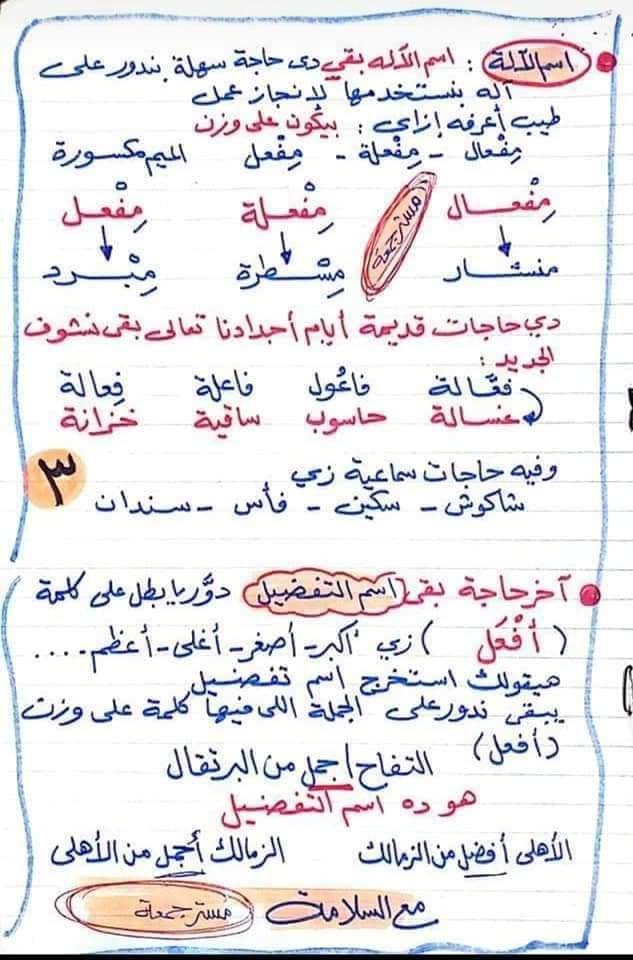 اسم الآلة : اسم الآله بقي دى حاجة سهلة بندور على
آله بنستخدمها لإنجاز عمل
طيب أعرفه إزاى : بيكون على وزن
مِفْعال - مِفْعلة - مِفْعل الميم مكسورة
مِفْعــال مِفْعلة مِفْعل
منشــار مِسْطرة مِبْرد
مستر جمعة
دي حاجات قديمة أيام أجدادنا تعالى بقى نشوف
الجديد :
فعَّالة فاعُول فاعلة فِعالة
غسالة حاسوب ساقية خزانة
وفيه حاجات سماعية زي
شاكوش - سكين - فأس - سندان
٣
آخر حاجة بقى (اسم التفضيل) دوَّر يا بطل على كلمة
( أَفْعَل ) زي أكبر - أصغر - أغلى - أعظم ....
هيقولك استخرج اسم تفضيل
يبقى ندور على الجملة اللى فيها كلمة على وزن
(أفعل)
التفاح أجمل من البرتقال
هو ده اسم التفضيل
الأهلى أفضل من الزمالك الزمالك أجمل من الأهلى
مع السلامة مستر جمعة